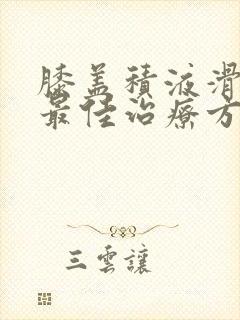 膝盖積液滑
最佳治療方
三雲讓